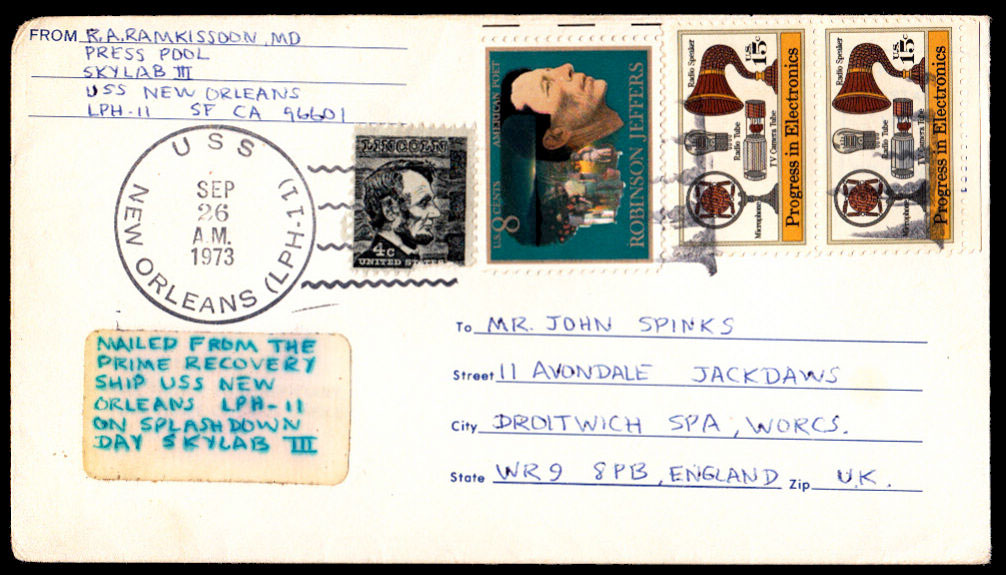 FROM R.A.RAMKISSOON, MD
PRESS POOL
SKYLAB III
USS NEW ORLEANS
LPH-11 SF CA 96601
USS
NEW ORLEANS (LPH-11)
SEP
26
A.M.
1973
LINCOLN
4c
UNITED STATES
U.S. 8 CENTS AMERICAN POET
ROBINSON JEFFERS
U.S. 15c
Radio Speaker
Radio Tube
TV Camera Tube
Microphone
Progress in Electronics
U.S. 15c
Radio Speaker
Radio Tube
TV Camera Tube
Microphone
Progress in Electronics
MAILED FROM THE
PRIME RECOVERY
SHIP USS NEW
ORLEANS LPH-11
ON SPLASHDOWN
DAY SKYLAB III
To MR. JOHN SPINKS
Street 11 AVONDALE JACKDAWS
City DROITWICH SPA, WORCS.
State WR9 8PB, ENGLAND Zip U.K.